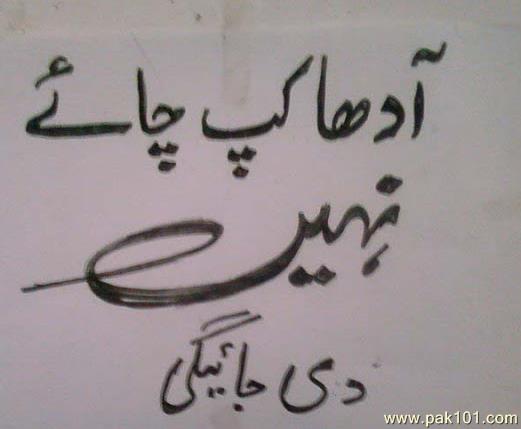 آدھا کپ چائے
نہیں
دی جائیگی
www.pak101.com